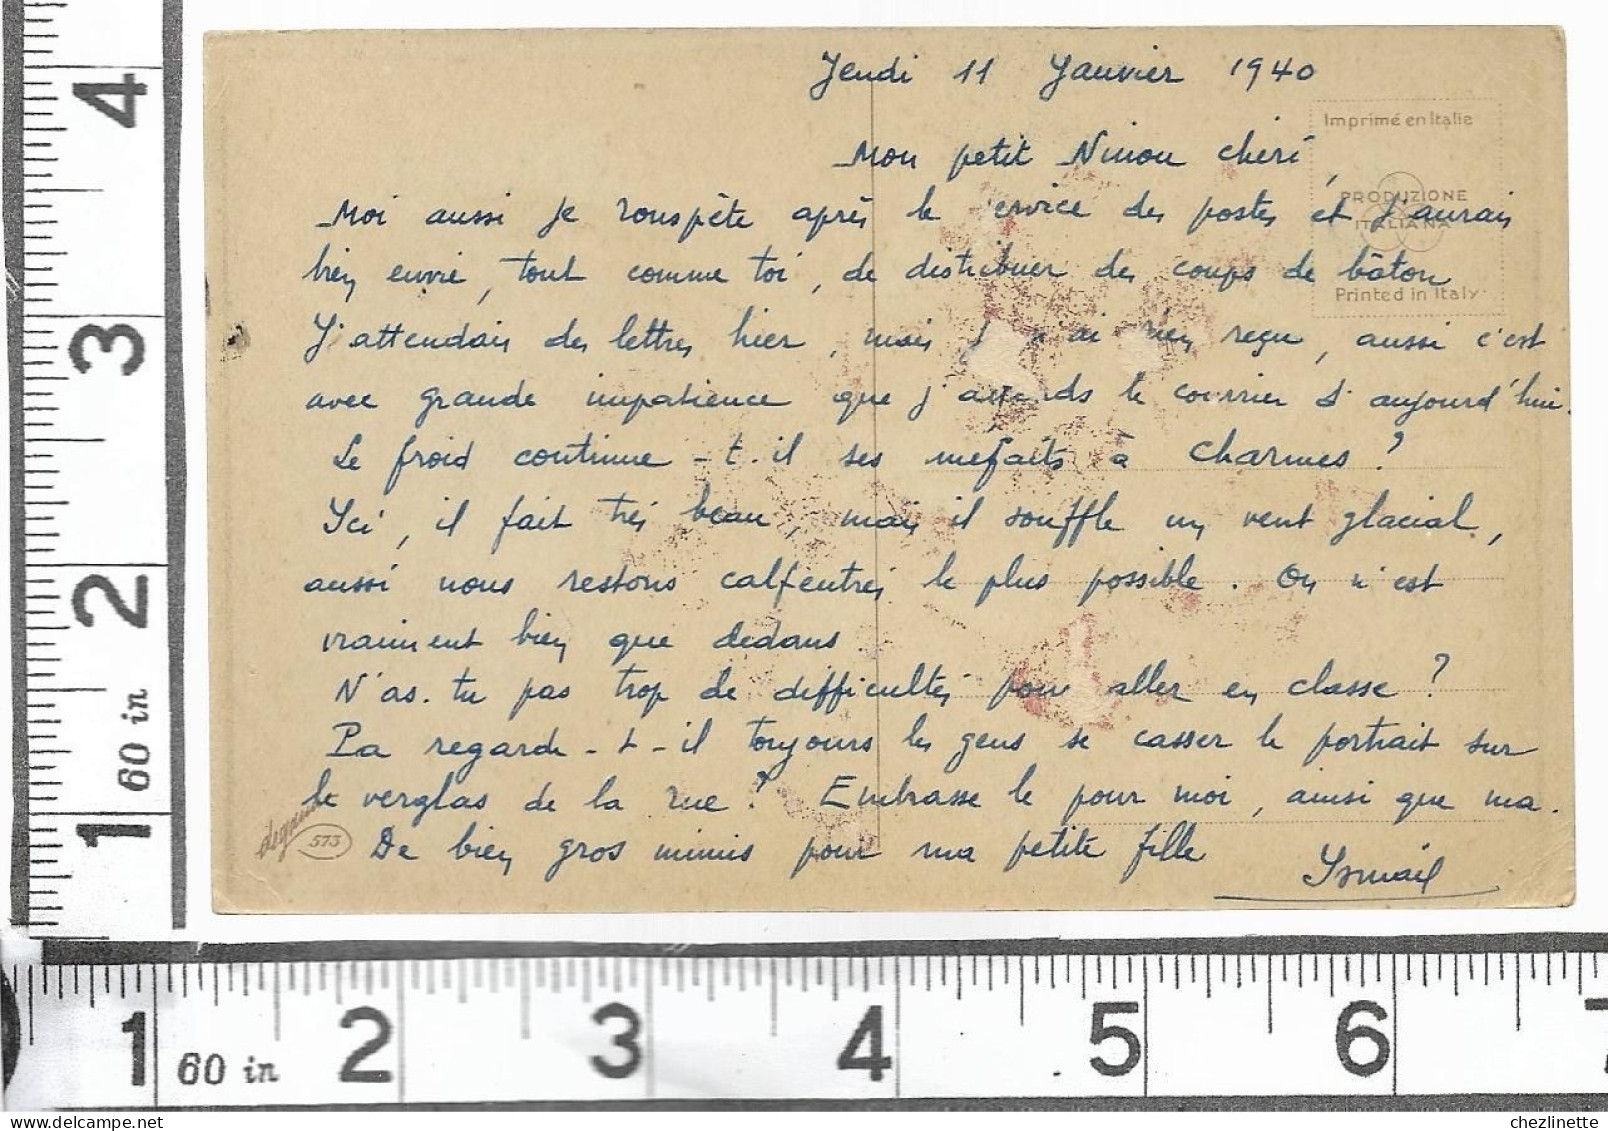 Jeudi 11 Janvier 1940
Imprimé en Italie
Mon petit Ninou chéri,
PRODUZIONE
ITALIANA
Moi aussi je rouspète après le service des postes et j'aurais
bien envie, tout comme toi, de distribuer des coups de bâton
Printed in Italy
J'attendais des lettres hier, mais j n'ai rien reçu, aussi c'est
avec grande impatience que j'attends le courrier d'aujourd'hui.
Le froid continue-t-il ses méfaits à Charmes ?
Ici, il fait très beau, mais il souffle un vent glacial,
aussi nous restons calfeutrés le plus possible. On n'est
vraiment bien que dedans
N'as-tu pas trop de difficultés pour aller en classe ?
Pa regarde-t-il toujours les gens se casser le portrait sur
le verglas de la rue ? Embrasse le pour moi, ainsi que ma.
De bien gros mimis pour ma petite fille
Ismaël
degami
573
4
3
2
60 in
1
1 60 in 2 3 4 5 6 7
chezlinette